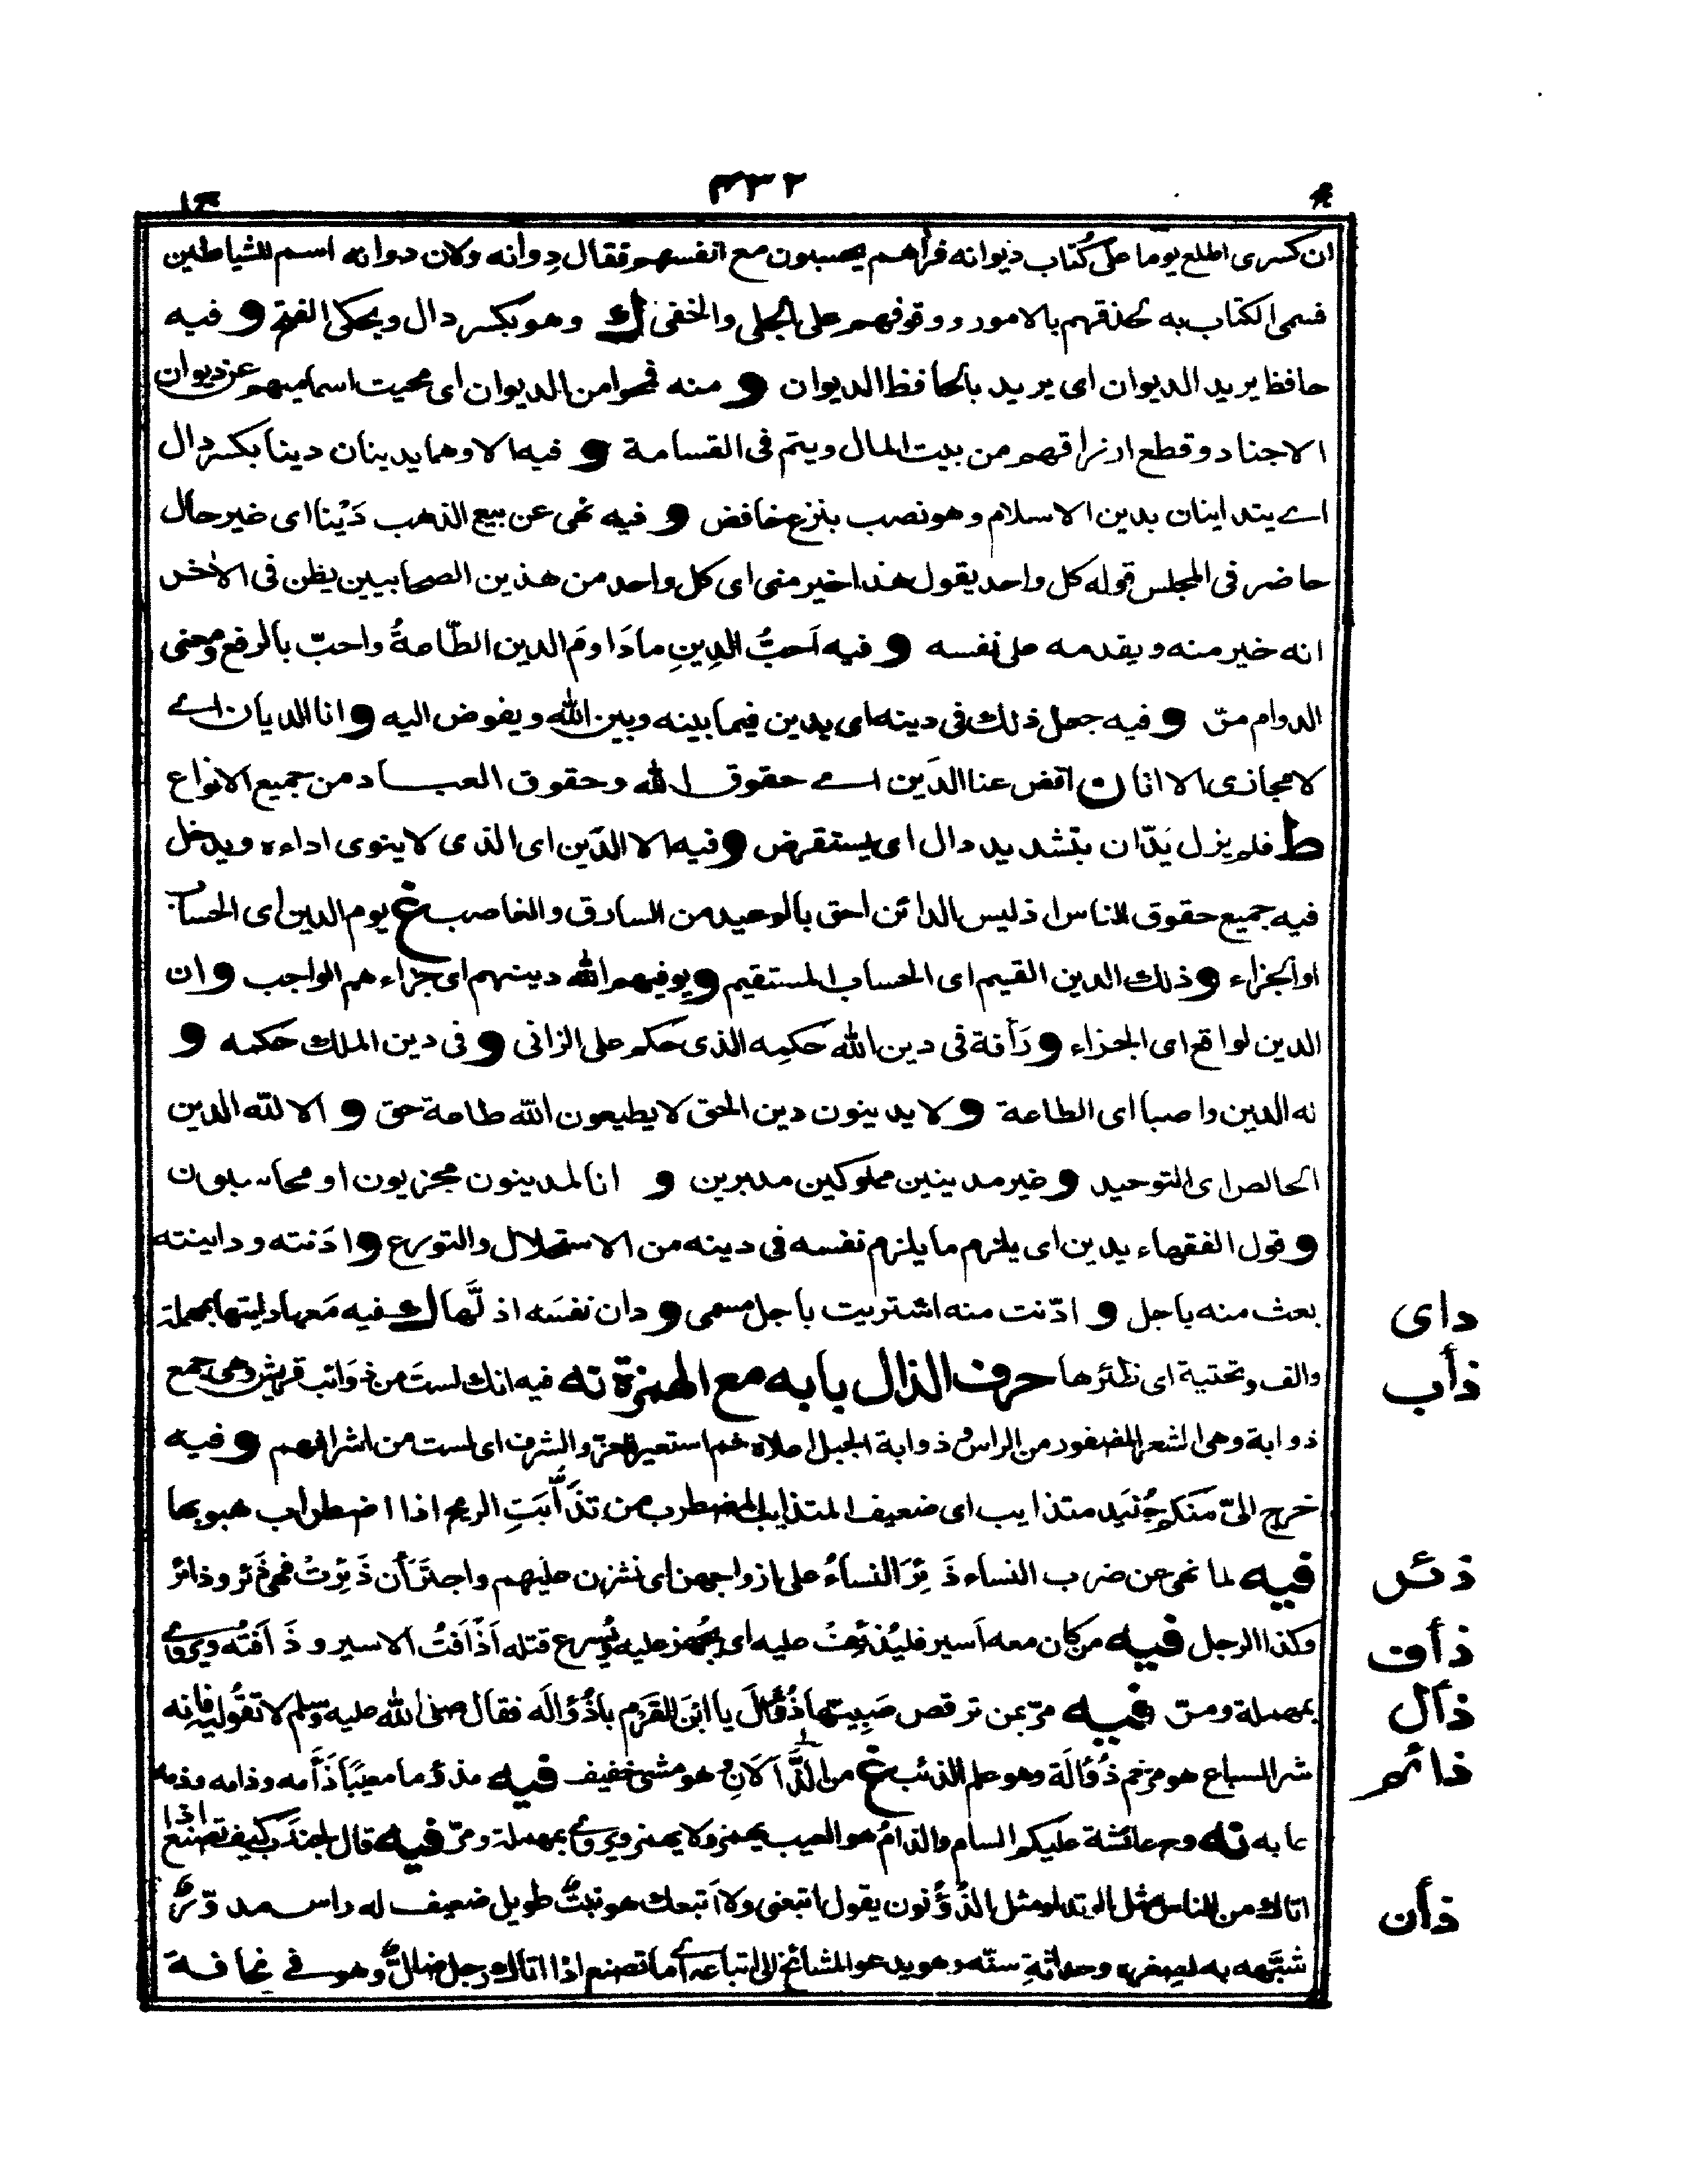 ۴۳۲
ان كسرى اطلع يوما على كتاب ديوانه فرآهم يحسبون مع انفسهم فقال دوانه وكان دوانه اسم للشياطين
فسمى الكتاب به لحذقهم بالامور ووقوفهم على الجلى والخفى ك وهو بكسر دال ويحكى الفتح و فيه
حافظ يريد الديوان اى يريد بالحافظ الديوان و منه فمحوا من الديوان اى محيت اساميهم عن ديوان
الاجناد وقطع ارزاقهم من بيت المال ويتم فى القسامة و فيه الا وهما يدينان دينا بكسر دال
اے يتداينان بدين الاسلام وهو نصب بنزع خافض و فيه نهى عن بيع الذهب دَيْنا اى غير حال
حاضر فى المجلس قوله كل واحد يقول هذا خير منى اى كل واحد من هذين الصحابيين يظن فى الآخر
انه خير منه ويقدمه على نفسه و فيه اَحبُّ الدِينِ ما دَاومَ الدين الطّاعةُ واحبّ بالرفع ومعنى
الدوام مرّ و فيه جعل ذلك فى دينه اى يدين فيما بينه وبين الله ويفوض اليه و انا الديان اے
لا مجازى الا انا ن اقض عنا الدَين اے حقوق الله وحقوق العباد من جميع الانواع
ط فلم يزل يَدّان بتشديد دال اى يستقرض و فيه الا الدَّين اى الذى لا ينوى اداءه ويدخل
فيه جميع حقوق الناس اذ ليس الدائن احق بالوعيد من السارق والغاصب غ يوم الدين اى الحساب
او الجزاء و ذلك الدين القيم اى الحساب المستقيم و يوفيهم الله دينهم اى جزاءهم الواجب و ان
الدين لواقع اى الجزاء و رَأفة فى دين الله حَكمِه الذى حَكم على الزانى و فى دين الملك حَكمه و
له الدين واصبا اى الطاعة و لا يدينون دين الحق لا يطيعون الله طاعة حق و الا لله الدين
الخالص اى التوحيد و غير مدينين مملوكين مدبرين و انا لمدينون مجزيون او محاسبون
و قول الفقهاء يدين اى يلزم ما يلزم نفسه فى دينه من الاستحلال والتورع و ادَنته وداينته
بعت منه باجل و ادّنت منه اشتريت باجل مسمى و دان نفسَه اذلَّها ك فيه مَعها دايتها بمهملة
والف وتحتية اى ظئرها حرف الذال بابه مع الهمزة نه فيه انك لستَ من ذَوَائب قريش وهى جمع
ذوابة وهى الشعر المضفور من الراس و ذوابة الجبل اعلاه ثم استعير للعز والشرف اى لست من اشرافهم و فيه
خرج الىّ مَنكم جُنَيد متذايب اى ضعيف المتذايب المضطرب من تذَأَّبَتِ الريح اذا اضطراب هبوبها
فيه لما نهى عن ضرب النساء ذَئِرَ النساءُ على ازواجهن اى نشزن عليهم واجترَأن ذَئِرتْ فهى ذَئر وذائر
وكذا الرجل فيه من كان معه اَسير فليُذئِفْ عليه اى يجهز عليه ويُسرع قتله اَذأَفتُ الاسير وذَأَفتُه ويروے
بمهملة ومرّ فيه مرّ بمن ترقص صَبِيتها ذُؤَالَ يا ابْنَ القَرْمِ ياذُؤالَه فقال صلى الله عليه وسلم لا تقُولِيه فانه
شر السباع هو مرخم ذُؤَالَة وهو علم الذئب غ من الذَّأَلَانِ هو مشى خفيف فيه مذؤما معيبًا ذَأَمه وذامه وذمه
عابه نه وح عائشة عليكم السام والذامُ هو العيب يهمز ولا يهمز ويروے بمهملة ومرّ فيه قال لجندَب كيف تصنع اذا
اتاك من الناس مثل الوتد او مثل الذُّؤنون يقول اتبعنى ولا اَتبعك هو نبتٌ طويل ضعيف له راس مدوّر
شبّهه به لصغره وحداثةِ سنّه وهو يدعو المشائخ الى اتباعه اے ما تصنع اذا اتاك رجل ضالٌ وهو فے نحافة
داى
ذأب
ذئر
ذأف
ذأل
ذائم
ذأن